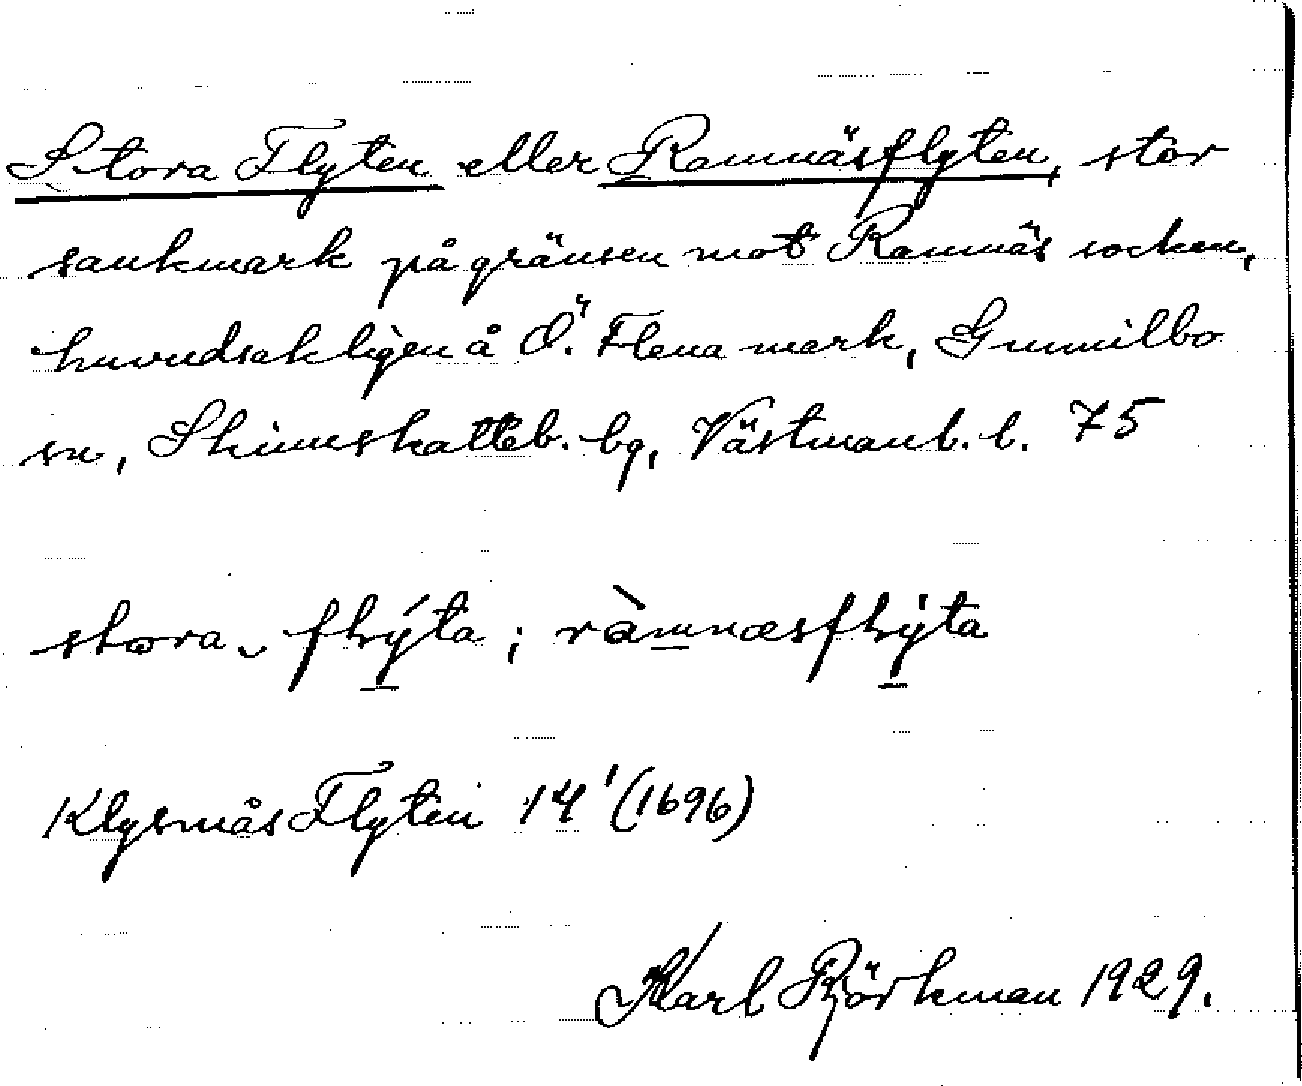 Stora Flyten eller Ramnäsflyten, stor
sankmark på gränsen mot Ramnäs socken,
huvudsakligen å Ö. Flena mark, Gunnilbo
sn, Skinnskatteb. bg, Västmanl. l. 75
stora ‿ flýta ; ràmnæsflýta
Klysmås Flyten 14 ' (1696)
Karl Björkman 1929.